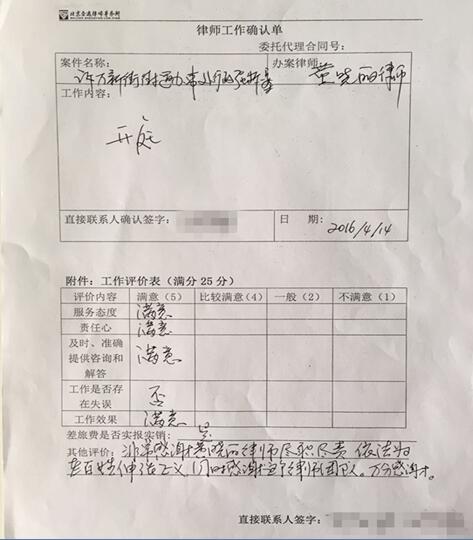 律师工作确认单
委托代理合同号：
案件名称：
办案律师：
董晓丽律师
工作内容：
开庭
直接联系人确认签字：
日 期：2016/4/14
附件：工作评价表（满分 25 分）
评价内容 满意（5） 比较满意（4） 一般（2） 不满意（1）
服务态度 满意
责任心 满意
及时、准确
提供咨询和 满意
解答
工作是否存 否
在失误
工作效果 满意
差旅费是否实报实销：是
其他评价：非常感谢董晓丽律师尽职尽责 依法为
老百姓伸张正义 同时感谢 律师团队。万分感谢。
直接联系人签字：